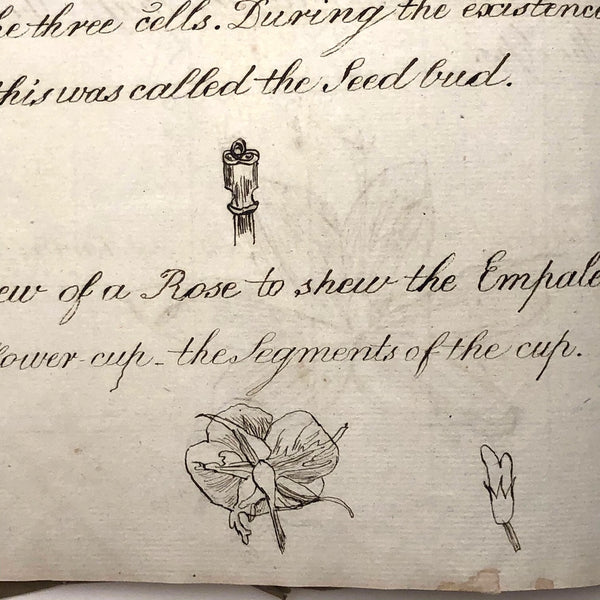 he three cells. During the existenc
this was called the Seed bud.
ew of a Rose to shew the Empale
lower-cup - the Segments of the cup.